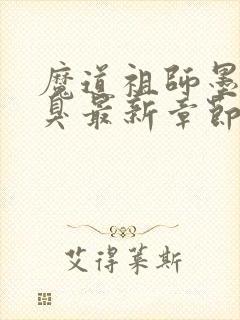 魔道祖師墨
臭最新章節
艾得莱斯